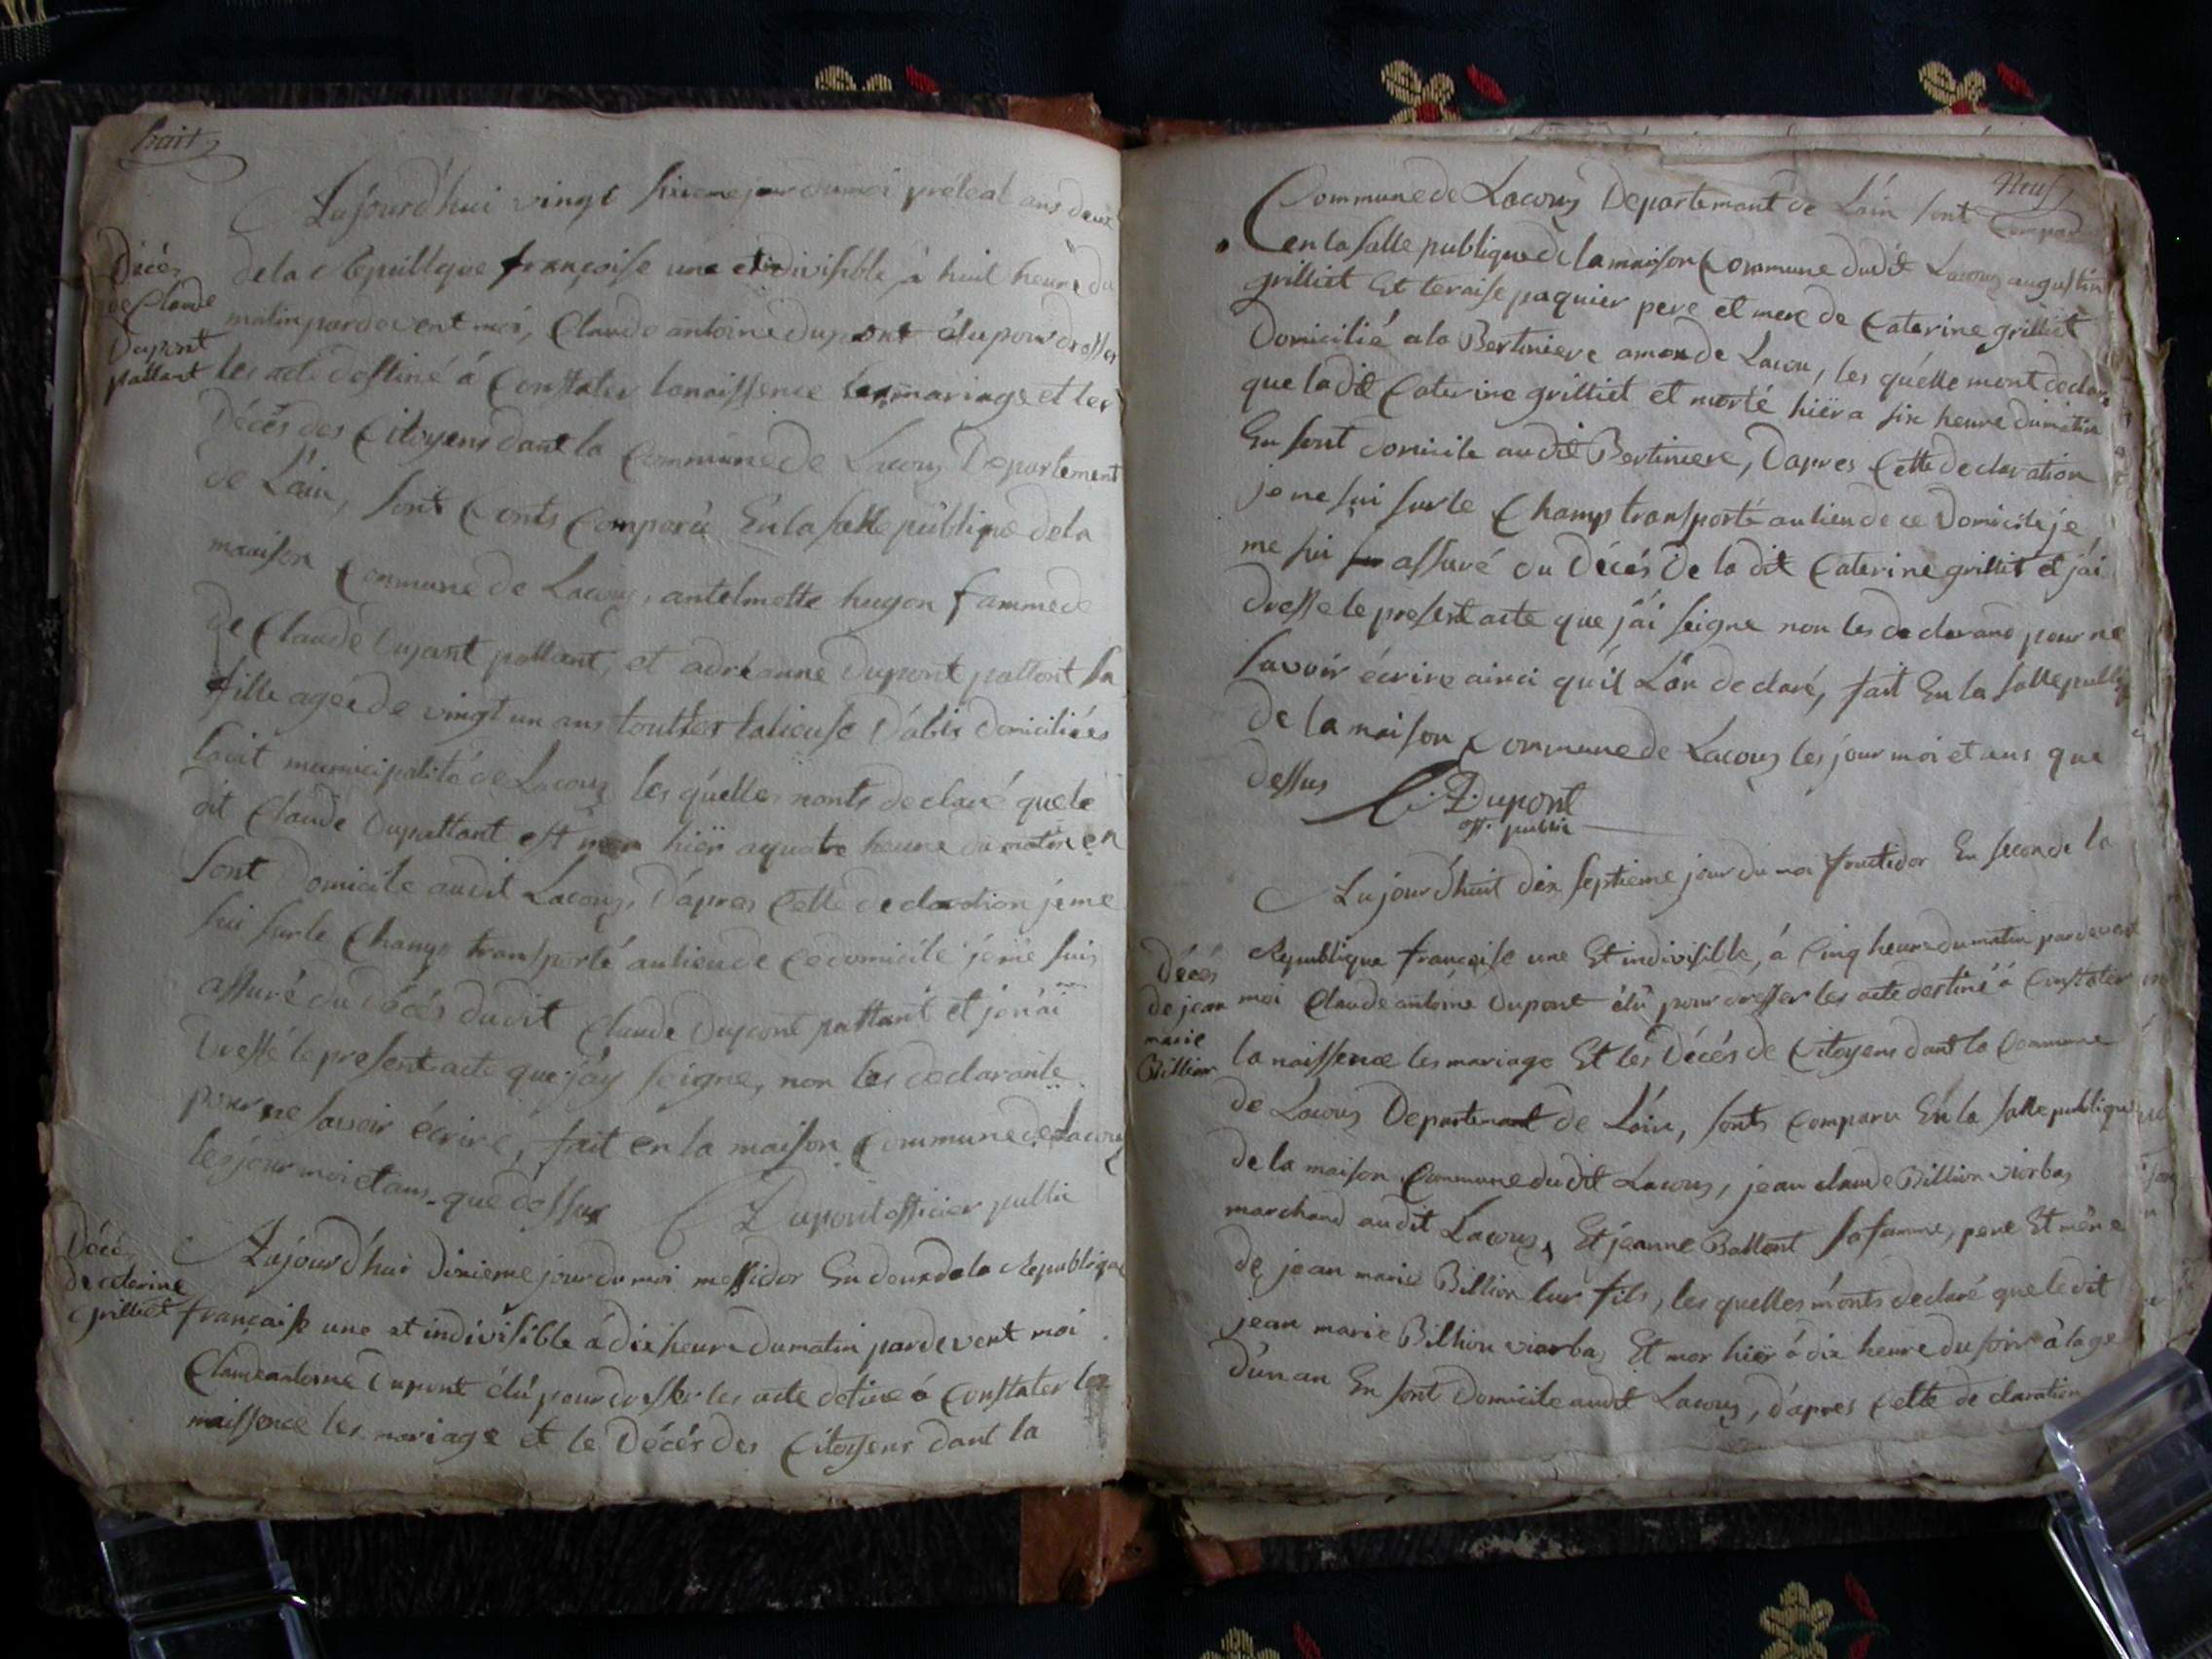 huit
Aujourd'hui vingt sixieme jour du moi preleal ans deux
Décés
de Claude
Dupont
pattant
de la Repuillque françoise une et indivisible, à huit heure du
matin par devent moi, Claude antoine dupont élu pour drosser
les acte destiné á Constater la naissence les mariage et les
Décès des Citoyens dant la Commune de Lacoux Departement
de L'ain, sont Conts Comparù En la salle publique de la
maiison Commune de Lacoux, antelmette hugon famme de
de Claude Dupont pattant, et adréanne Dupont pattant sa
fille ageé de vingt un ans touttes domiciliées
municipalité de Lacoux les quélles monts declaré que le
dit Claude Dupattant est mor hiër a quatre heure du matin en
sont Domicile audit Lacoux, D'apres Cette declaration je me
sui sur le Champ transporté au lieu de Ce domicile je me suis
assuré du décés dudit Claude Dupont pattant et j'en ai
Dressé le present acte que j'ay seigne, non les declarante
pour ne savoir écrire, fait én la maison Commune de Lacoux
les jour moi et ans que dessus C Dupont officier public
Décé
de caterine
Grilliet
Aujourd'hui dixieme jour du moi messidor En deux de la Republique
française une et indivisible á dix heure du matin par devent moi
Claude antoine Dupont élú pour dresser les acte detiné á Constater la
naissence les mariage et le Décés des Citoyens dant la
Neuf
Commune de Lacoux Departemant de L'ain sont Compar
en la salle publique de la maison Commune dudit Lacoux augustin
grilliet Et teraise paquier pere et mere de Caterine grilliet
Domicilié a la Bertiniere de Lacou, les quélle mont declare
que ladit Caterine grilliet et morté hiër a six heure du matin
En sont domicile audit Bertiniere, D'apres Cette declaration
je me sui sur le Champ transporté au lieu de ce Domicile je
me sui assuré du Décés de la dit Caterine grilliet et j'ai
dresse le present acte que j'ai seigne non les declarans pour ne
savoir écrire ainci qu'il L'on declaré, fait En la salle publiq
de la maison Commune de Lacoux les jour moi et ans que
dessus C. A. Dupont
off. public
Aujourd'huit dix septieme jour du moi fructidor En seconde la
Décés
de jean
marie
Billion
Republique françoise une Et indivisible, à Cinq heure du matin par devent
moi Claude antoine Dupont élû pour dresser les acte destiné á Constater
la naissence les mariage Et les Décés de Citoyens dant la Commune
de Lacoux Departemant de L'ain, sonts Comparu En la salle publique
de la maison Commune dudit Lacoux, jean claude Billion viorbaz
marchand audit Lacoux, Et jeanne Ballant sa famme, pere Et mêre
de jean marie Billion lur fils, les quelles m'onts declaré que le dit
jean marie Billion viorbaz Et mor hiër á dix heure du soir á l'age
d'un an En sont Domicile audit Lacoux, d'apres Cette declaration